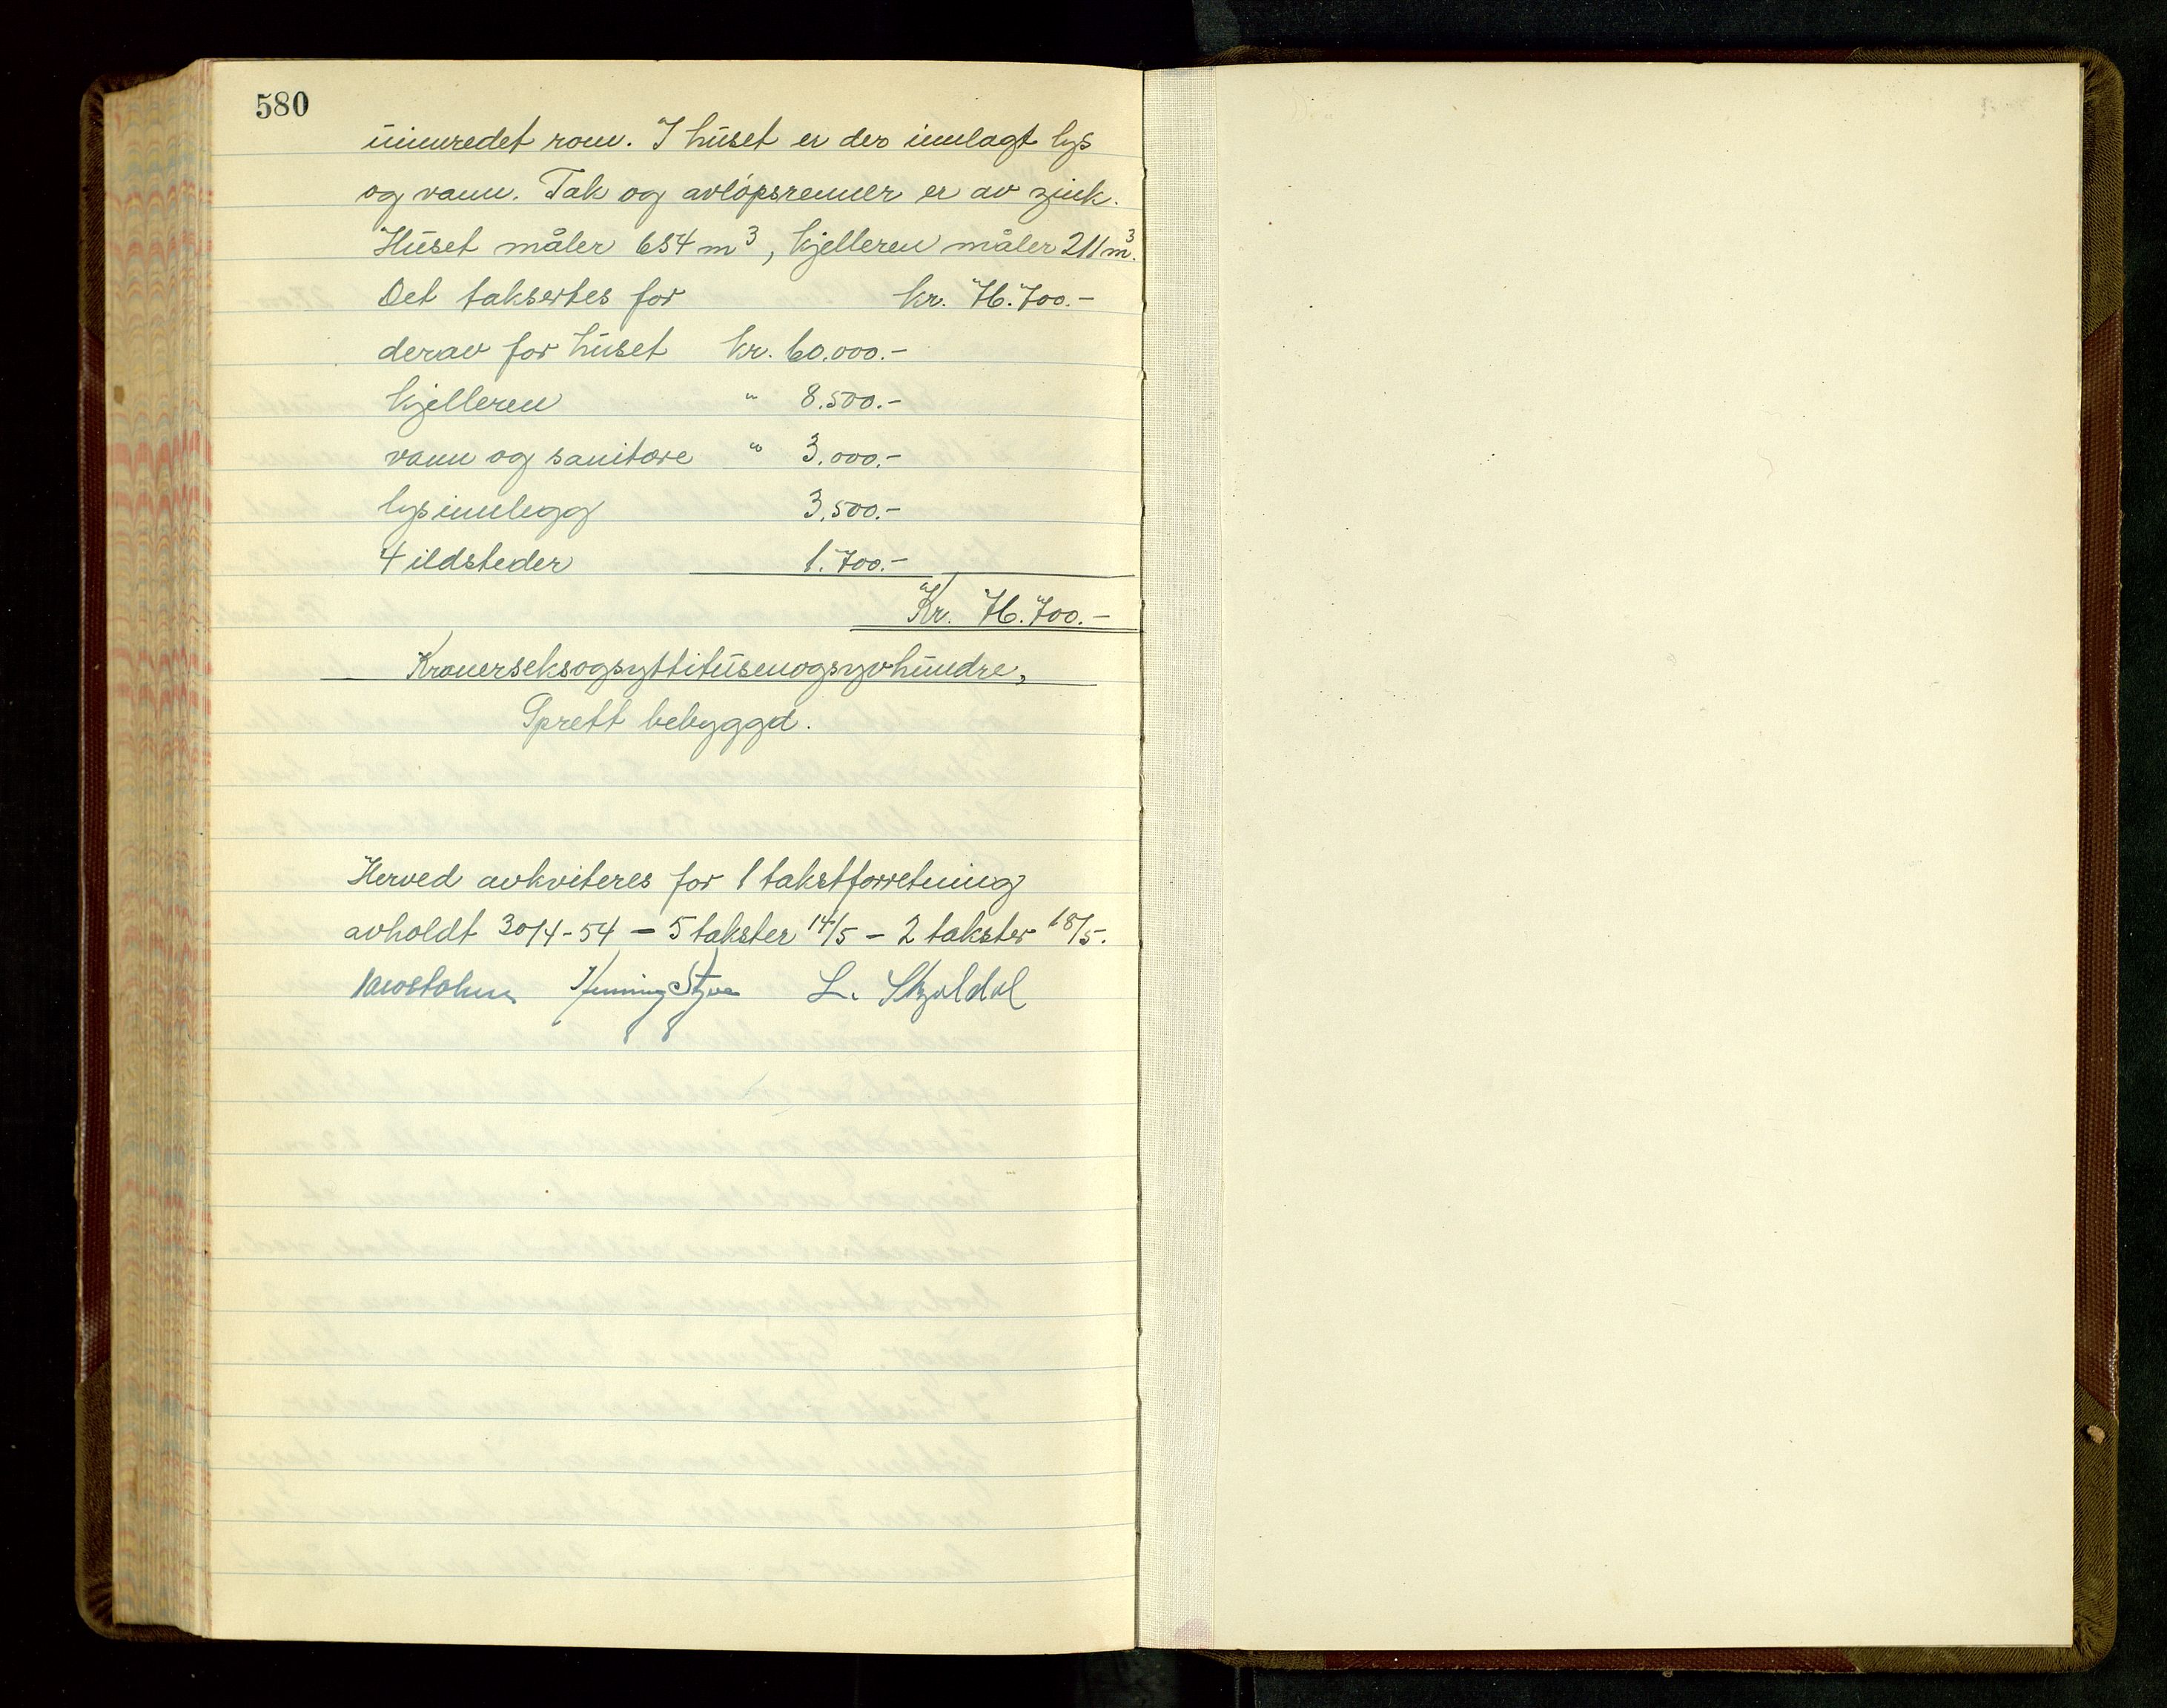 580
uinnredet rom. I huset er der innlagt lys
og vann. Tak og avløpsrenner er av zink.
Huset måler 654 m³, kjelleren måler 211 m³.
Det taksertes for kr. 76.700.-
derav for huset kr. 60.000.-
kjelleren " 8.500.-
vann og sanitære " 3.000.-
lysinnlegg 3.500.-
4 ildsteder 1.700.-
Kr. 76.700.-
Kronerseksogsyttitusenogsyvhundre,
Sprett bebyggd.
Herved avkviteres for 1 takstforretning
avholdt 30/4-54 - 5 takster 14/5 - 2 takster 18/5.
Henning Styve L. Skjoldal